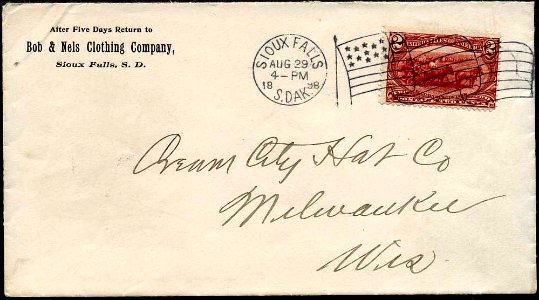 After Five Days Return to
Bob & Nels Clothing Company,
Sioux Falls, S. D.
SIOUX FALLS
AUG 29
4-PM
18 98
S.DAK.
2 2
Cream City Hat Co
Milwaukee
Wis